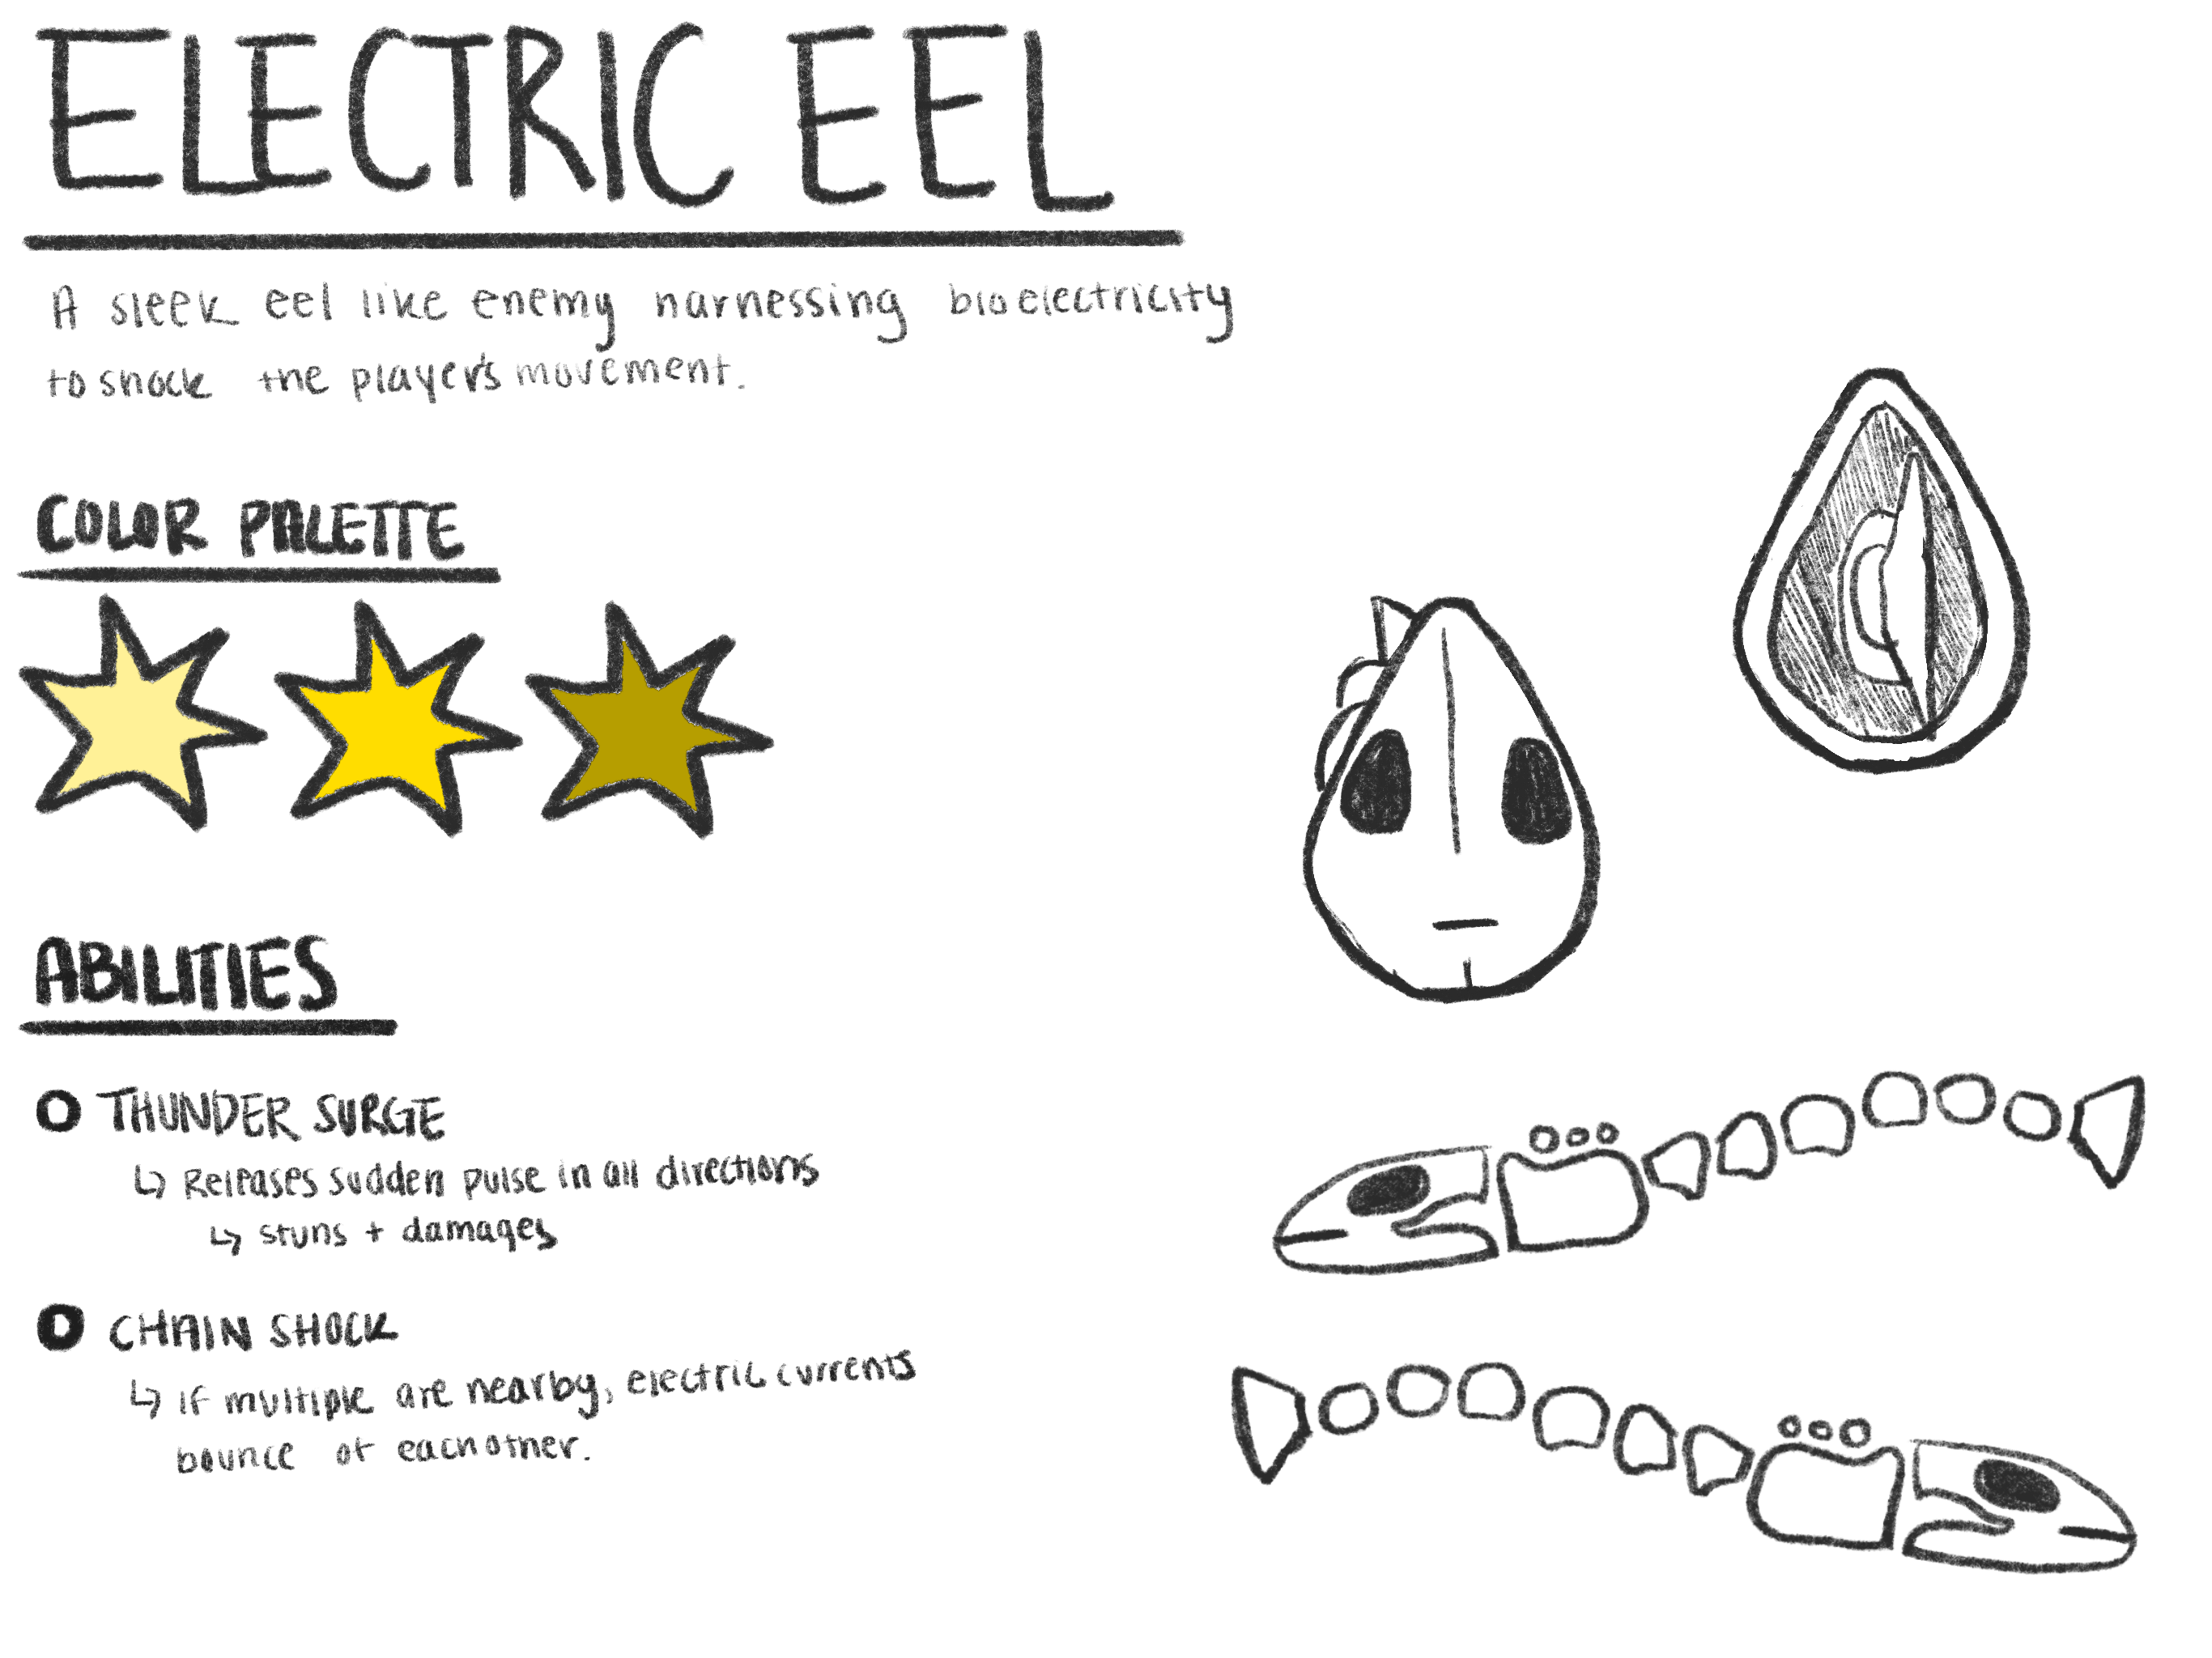 ELECTRIC EEL
A sleek eel like enemy harnessing bioelectricity
to shock the player's movement.
COLOR PALETTE
ABILITIES
THUNDER SURGE
↳ Releases sudden pulse in all directions
↳ stuns + damages
CHAIN SHOCK
↳ If multiple are nearby, electric currents
bounce of each other.